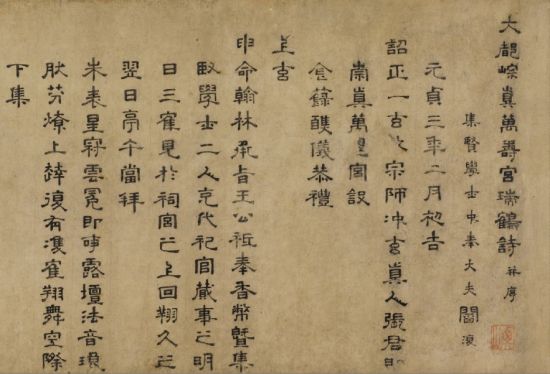 大都崇真萬壽宮瑞鶴詩 并序
集賢學士中奉大夫閻復
元貞三年二月初吉
詔正一玄教宗師沖玄真人張君即
崇真萬壽宮設
金籙醮儀恭禮
上玄
申命翰林承旨王公祗奉香幣暨集
賢學士二人充代祀官蕆事之明
日三鶴見於祠宮之上回翔久之
翌日亭午當拜
朱表星冠雲冕即事露壇法音
芬燎上達復有雙鶴翔舞空際
下集